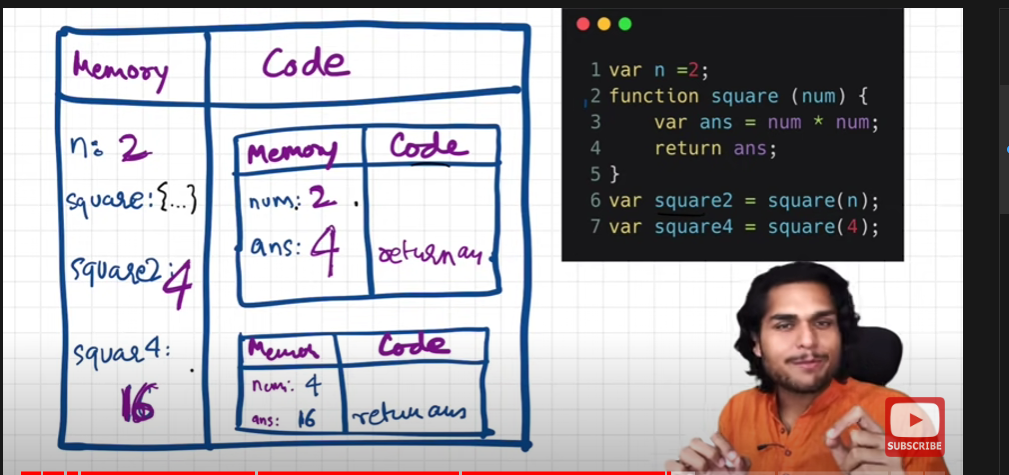 Memory Code
n: 2
square: {...}
square2: 4
squar4:
16
Memory Code
num: 2 .
ans: 4 return an
Memor Code
num: 4
ans: 16 return ans
1 var n =2;
2 function square (num) {
3 var ans = num * num;
4 return ans;
5 }
6 var square2 = square(n);
7 var square4 = square(4);
SUBSCRIBE